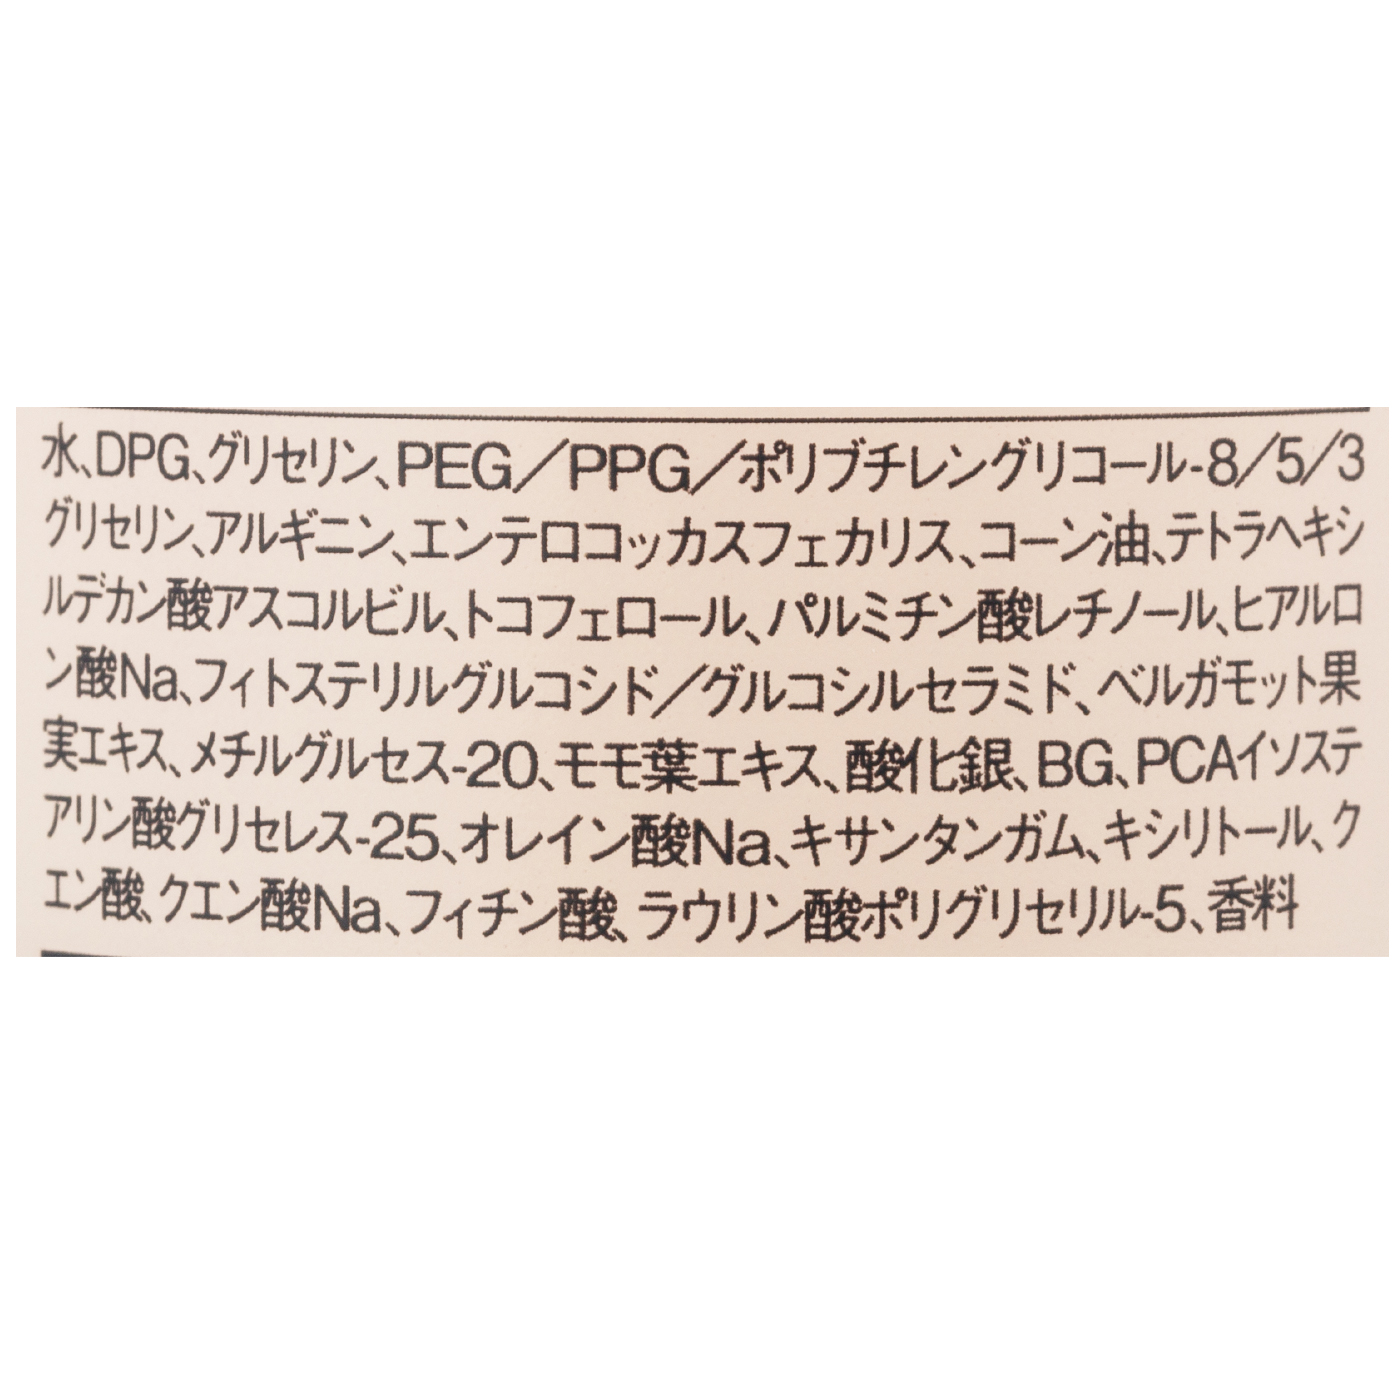 水、DPG、グリセリン、PEG／PPG／ポリブチレングリコール-8／5／3
グリセリン、アルギニン、エンテロコッカスフェカリス、コーン油、テトラヘキシ
ルデカン酸アスコルビル、トコフェロール、パルミチン酸レチノール、ヒアルロ
ン酸Na、フィトステリルグルコシド／グルコシルセラミド、ベルガモット果
実エキス、メチルグルセス-20、モモ葉エキス、酸化銀、BG、PCAイソステ
アリン酸グリセレス-25、オレイン酸Na、キサンタンガム、キシリトール、ク
エン酸、クエン酸Na、フィチン酸、ラウリン酸ポリグリセリル-5、香料